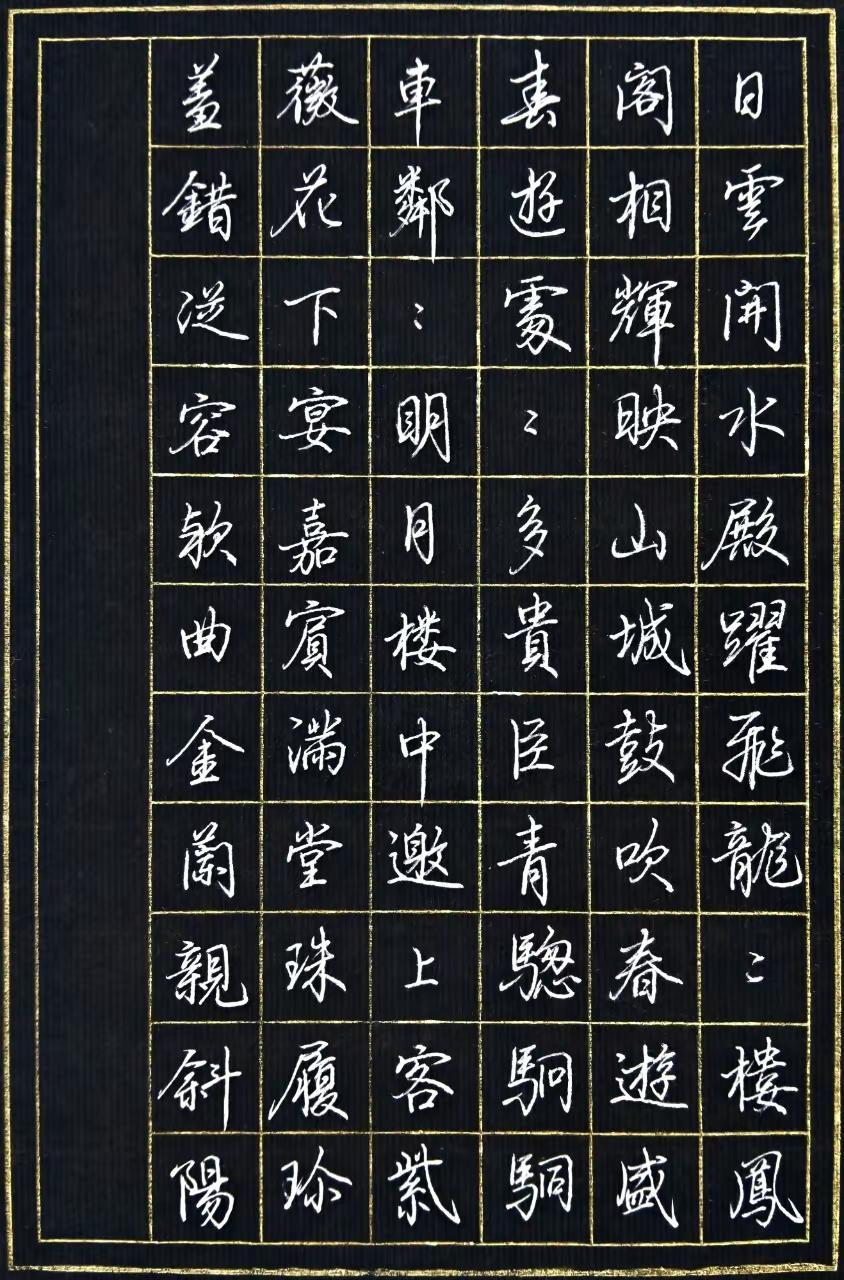 日雲開水殿躍飛龍〻樓鳳
閣相輝映山城鼓吹春遊盛
春遊處〻多貴臣青驄駉駉
車鄰〻明月樓中邀上客紫
薇花下宴嘉賓滿堂珠履珍
蓋錯從容款曲金蘭親斜陽